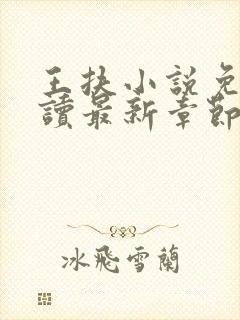 王扶小說免
讀最新章節
冰飛雪蘭